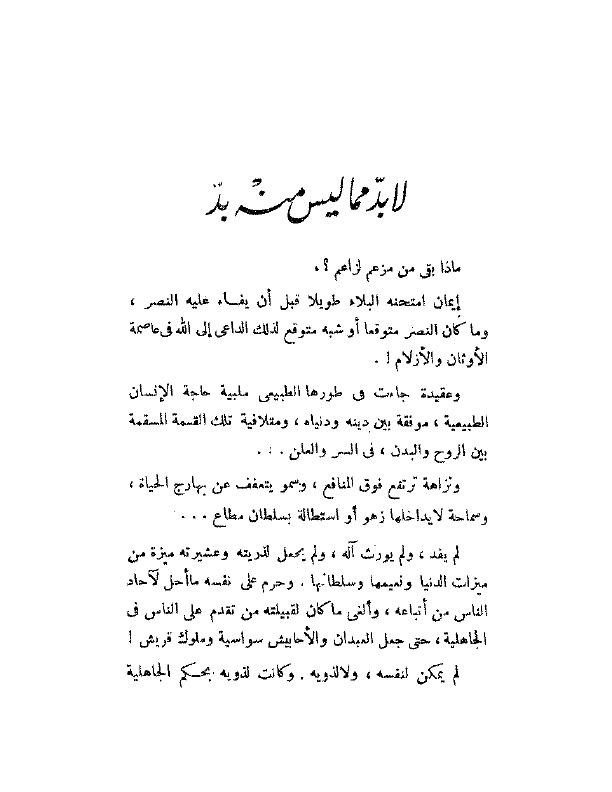 لا بدّ مما ليس منه بدّ
ماذا بقى من مزعم لزاعم ؟ .
إيمان امتحنه البلاء طويلا قبل أن يفاء عليه النصر ،
وما كان النصر متوقعا أو شبه متوقع لذلك الداعى إلى الله فى عاصمة
الأوثان والأزلام ! .
وعقيدة جاءت فى طورها الطبيعى ملبية حاجة الإنسان
الطبيعية ، موفقة بين دينه ودنياه ، ومتلافية تلك القسمة المسقمة
بين الروح والبدن ، فى السر والعلن . . .
ونزاهة ترتفع فوق المنافع ، وسمو يتعفف عن بهارج الحياة ،
وسماحة لا يداخلها زهو أو استطالة بسلطان مطاع . . .
لم يفد ، ولم يورث آله ، ولم يجعل لذريته وعشيرته ميزة من
ميزات الدنيا ونعيمها وسلطانها . وحرم على نفسه ما أحل لآحاد
الناس من أتباعه ، وألغى ما كان لقبيلته من تقدم على الناس فى
الجاهلية ، حتى جعل العبدان والأحابيش سواسية وملوك قريش !
لم يمكن لنفسه ، ولا لذويه . وكانت لذويه بحكم الجاهلية